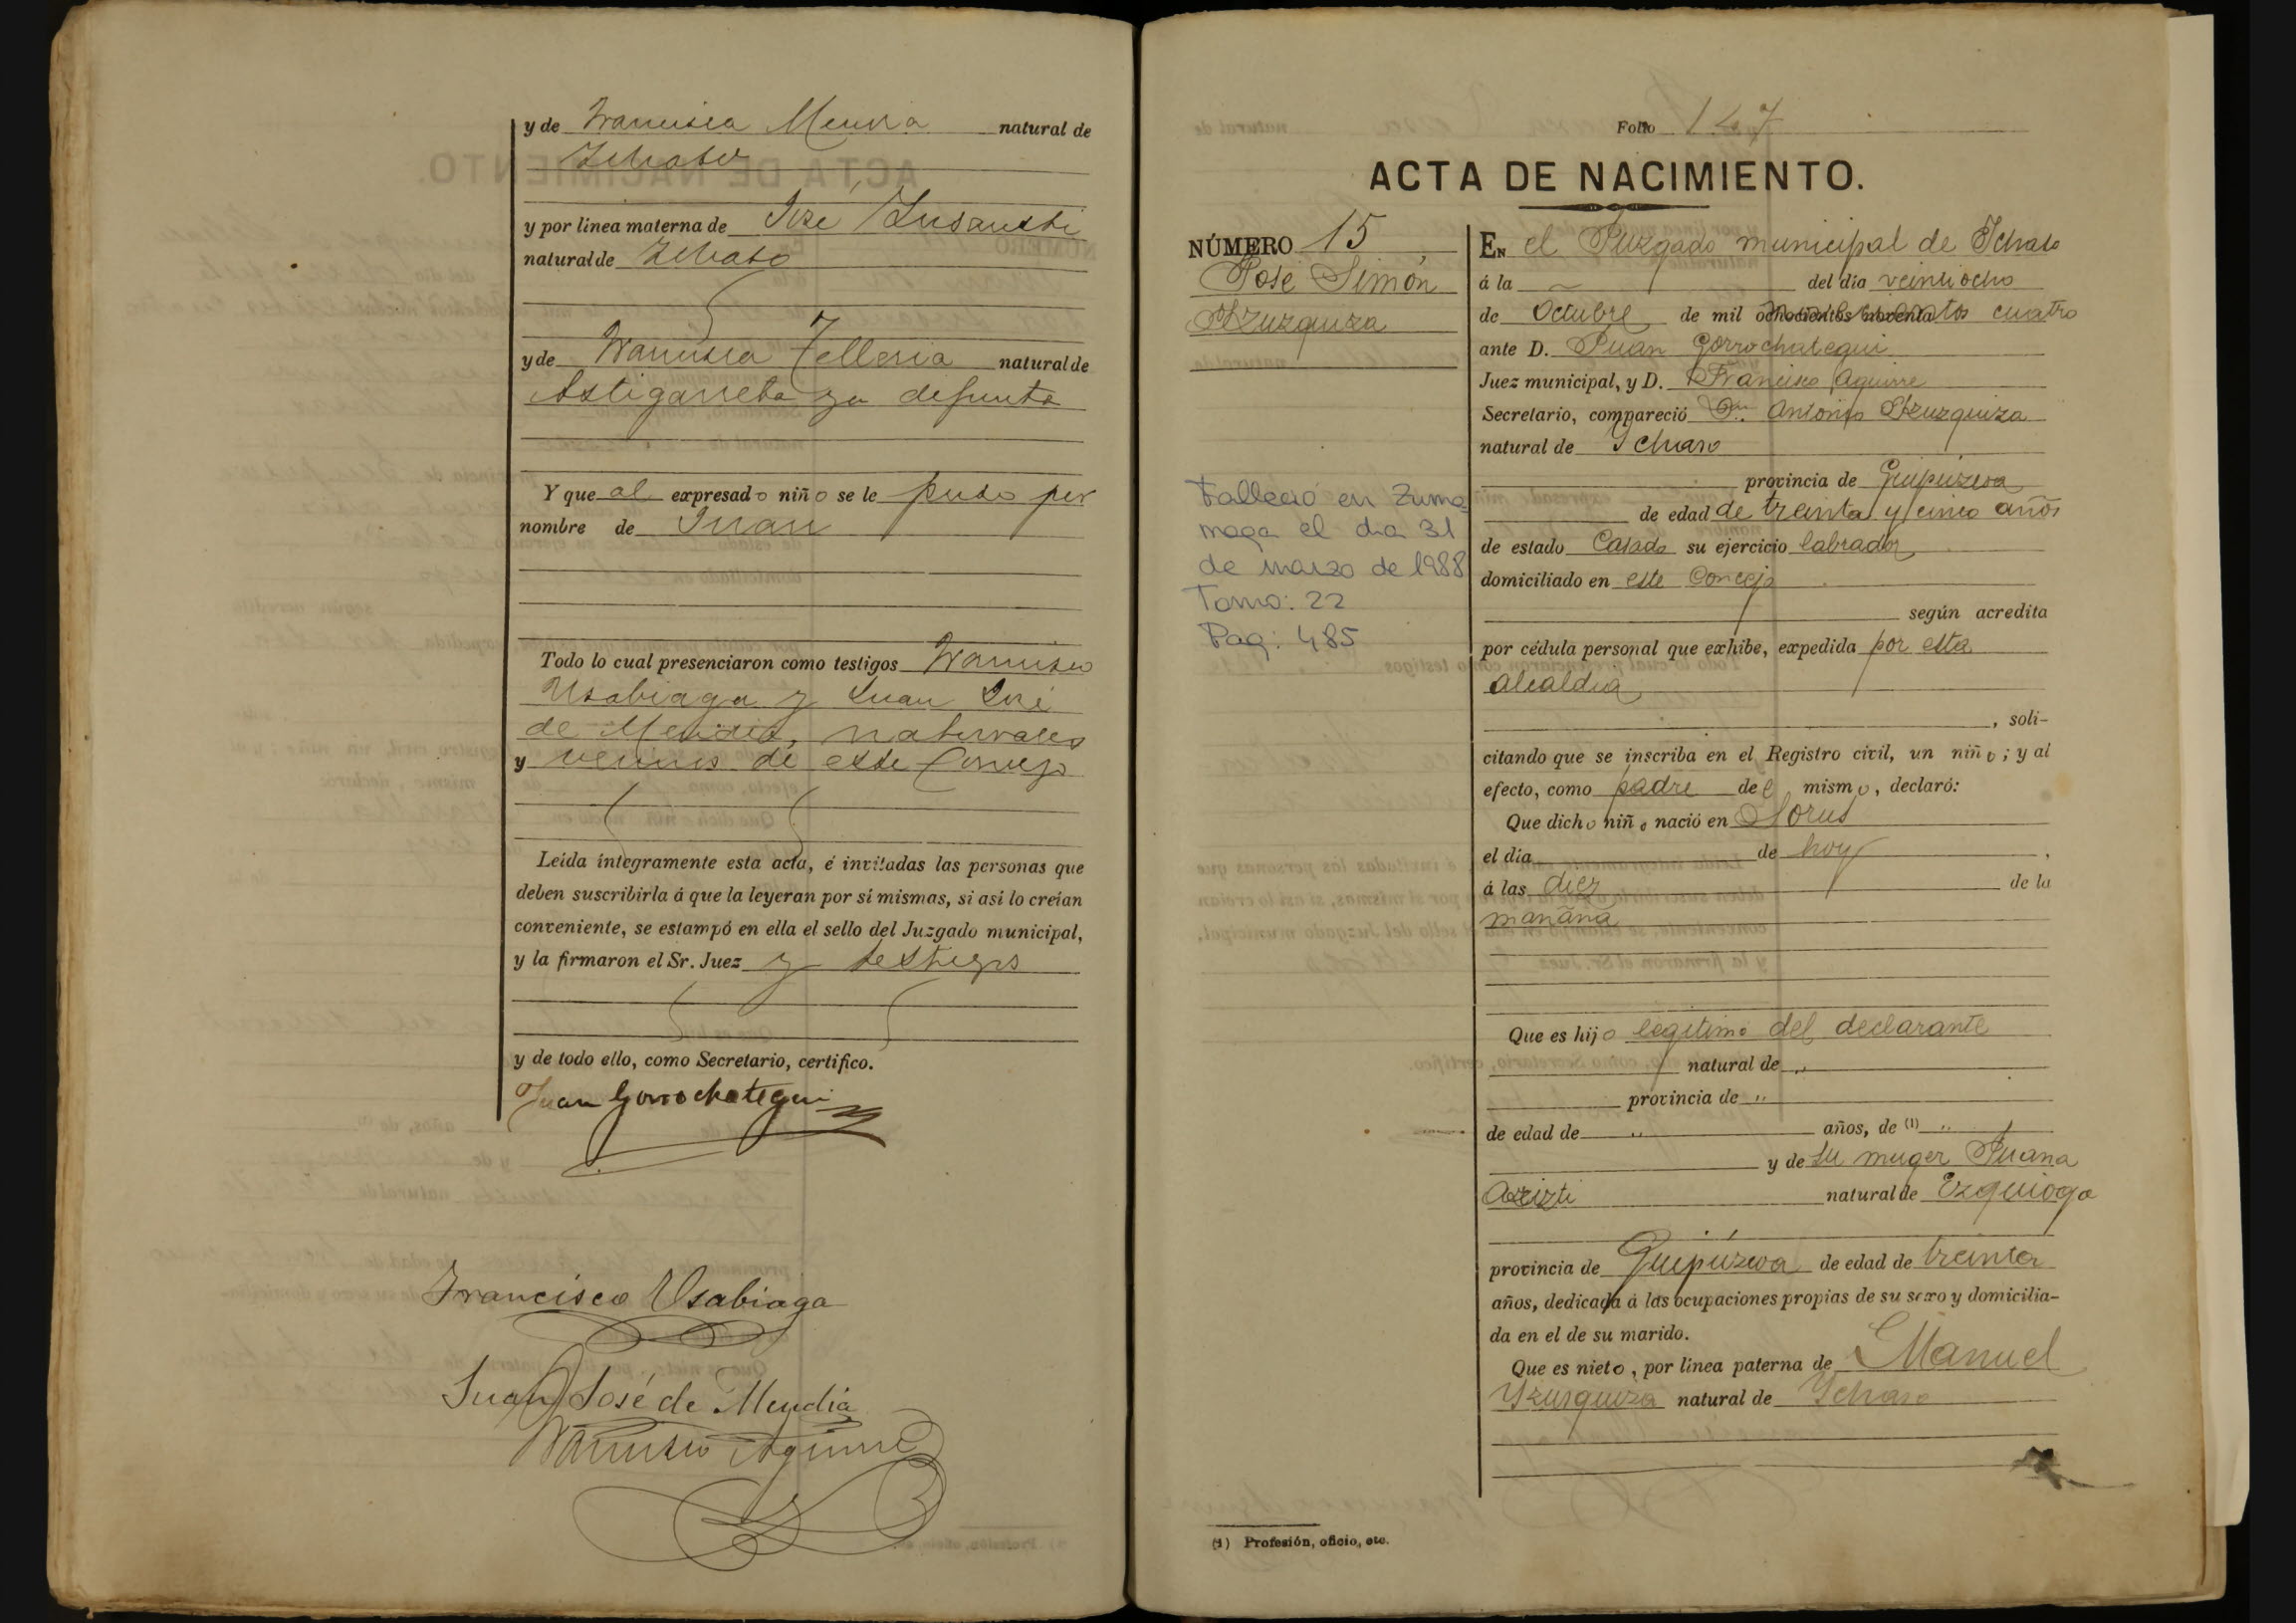 y de Francisca Mendia natural de
Ichaso
y por linea materna de José Insausti
natural de Ichaso
y de Francisca Telleria natural de
Astigarreta ya defunta
Y que al expresado niño se le puso por
nombre de Juan
Todo lo cual presenciaron como testigos Francisco
Usabiaga y Juan José
de Mendia, naturales
y vecinos de este Concejo
Leída íntegramente esta acta, é invitadas las personas que
deben suscribirla á que la leyeran por sí mismas, si así lo creían
conveniente, se estampó en ella el sello del Juzgado municipal,
y la firmaron el Sr. Juez y testigos
y de todo ello, como Secretario, certifico.
Juan Gorrochategui
Francisco Usabiaga
Juan José de Mendia
Francisco Aguirre
Folio 147
ACTA DE NACIMIENTO.
NÚMERO 15
José Simón
Yzuzquiza
Falleció en Zuma-
rraga el dia 31
de marzo de 1988
Tomo: 22
Pag: 485
En el Juzgado municipal de Ichaso
á la del dia veintiocho
de Octubre de mil ochocientos noventa novecientos cuatro
ante D. Juan Gorrochategui
Juez municipal, y D. Francisco Aguirre
Secretario, compareció Dn. Antonio Yzuzquiza
natural de Ichaso
provincia de Guipúzcoa
de edad de treinta y cinco años
de estado Casado su ejercicio labrador
domiciliado en este Concejo
según acredita
por cédula personal que exhibe, expedida por esta
alcaldia
, soli-
citando que se inscriba en el Registro civil, un niño; y al
efecto, como padre del mismo, declaró:
Que dicho niño nació en
el dia de hoy,
á las diez de la
mañana
Que es hijo legitimo del declarante
natural de "
provincia de "
de edad de " años, de (1) "
y de su muger Juana
Arizti natural de Ezquioga
provincia de Guipúzcoa de edad de treinta
años, dedicada á las ocupaciones propias de su sexo y domicilia-
da en el de su marido.
Que es nieto, por linea paterna de Manuel
Yzuzquiza natural de Ichaso
(1) Profesión, oficio, etc.